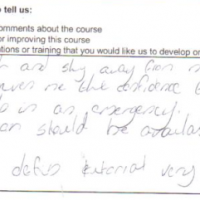 tell us:
omments about the course
r improving this course
tions or training that you would like us to develop or
and shy away from
me the confidence
in an emergency.
should be availa
defib tutorial very